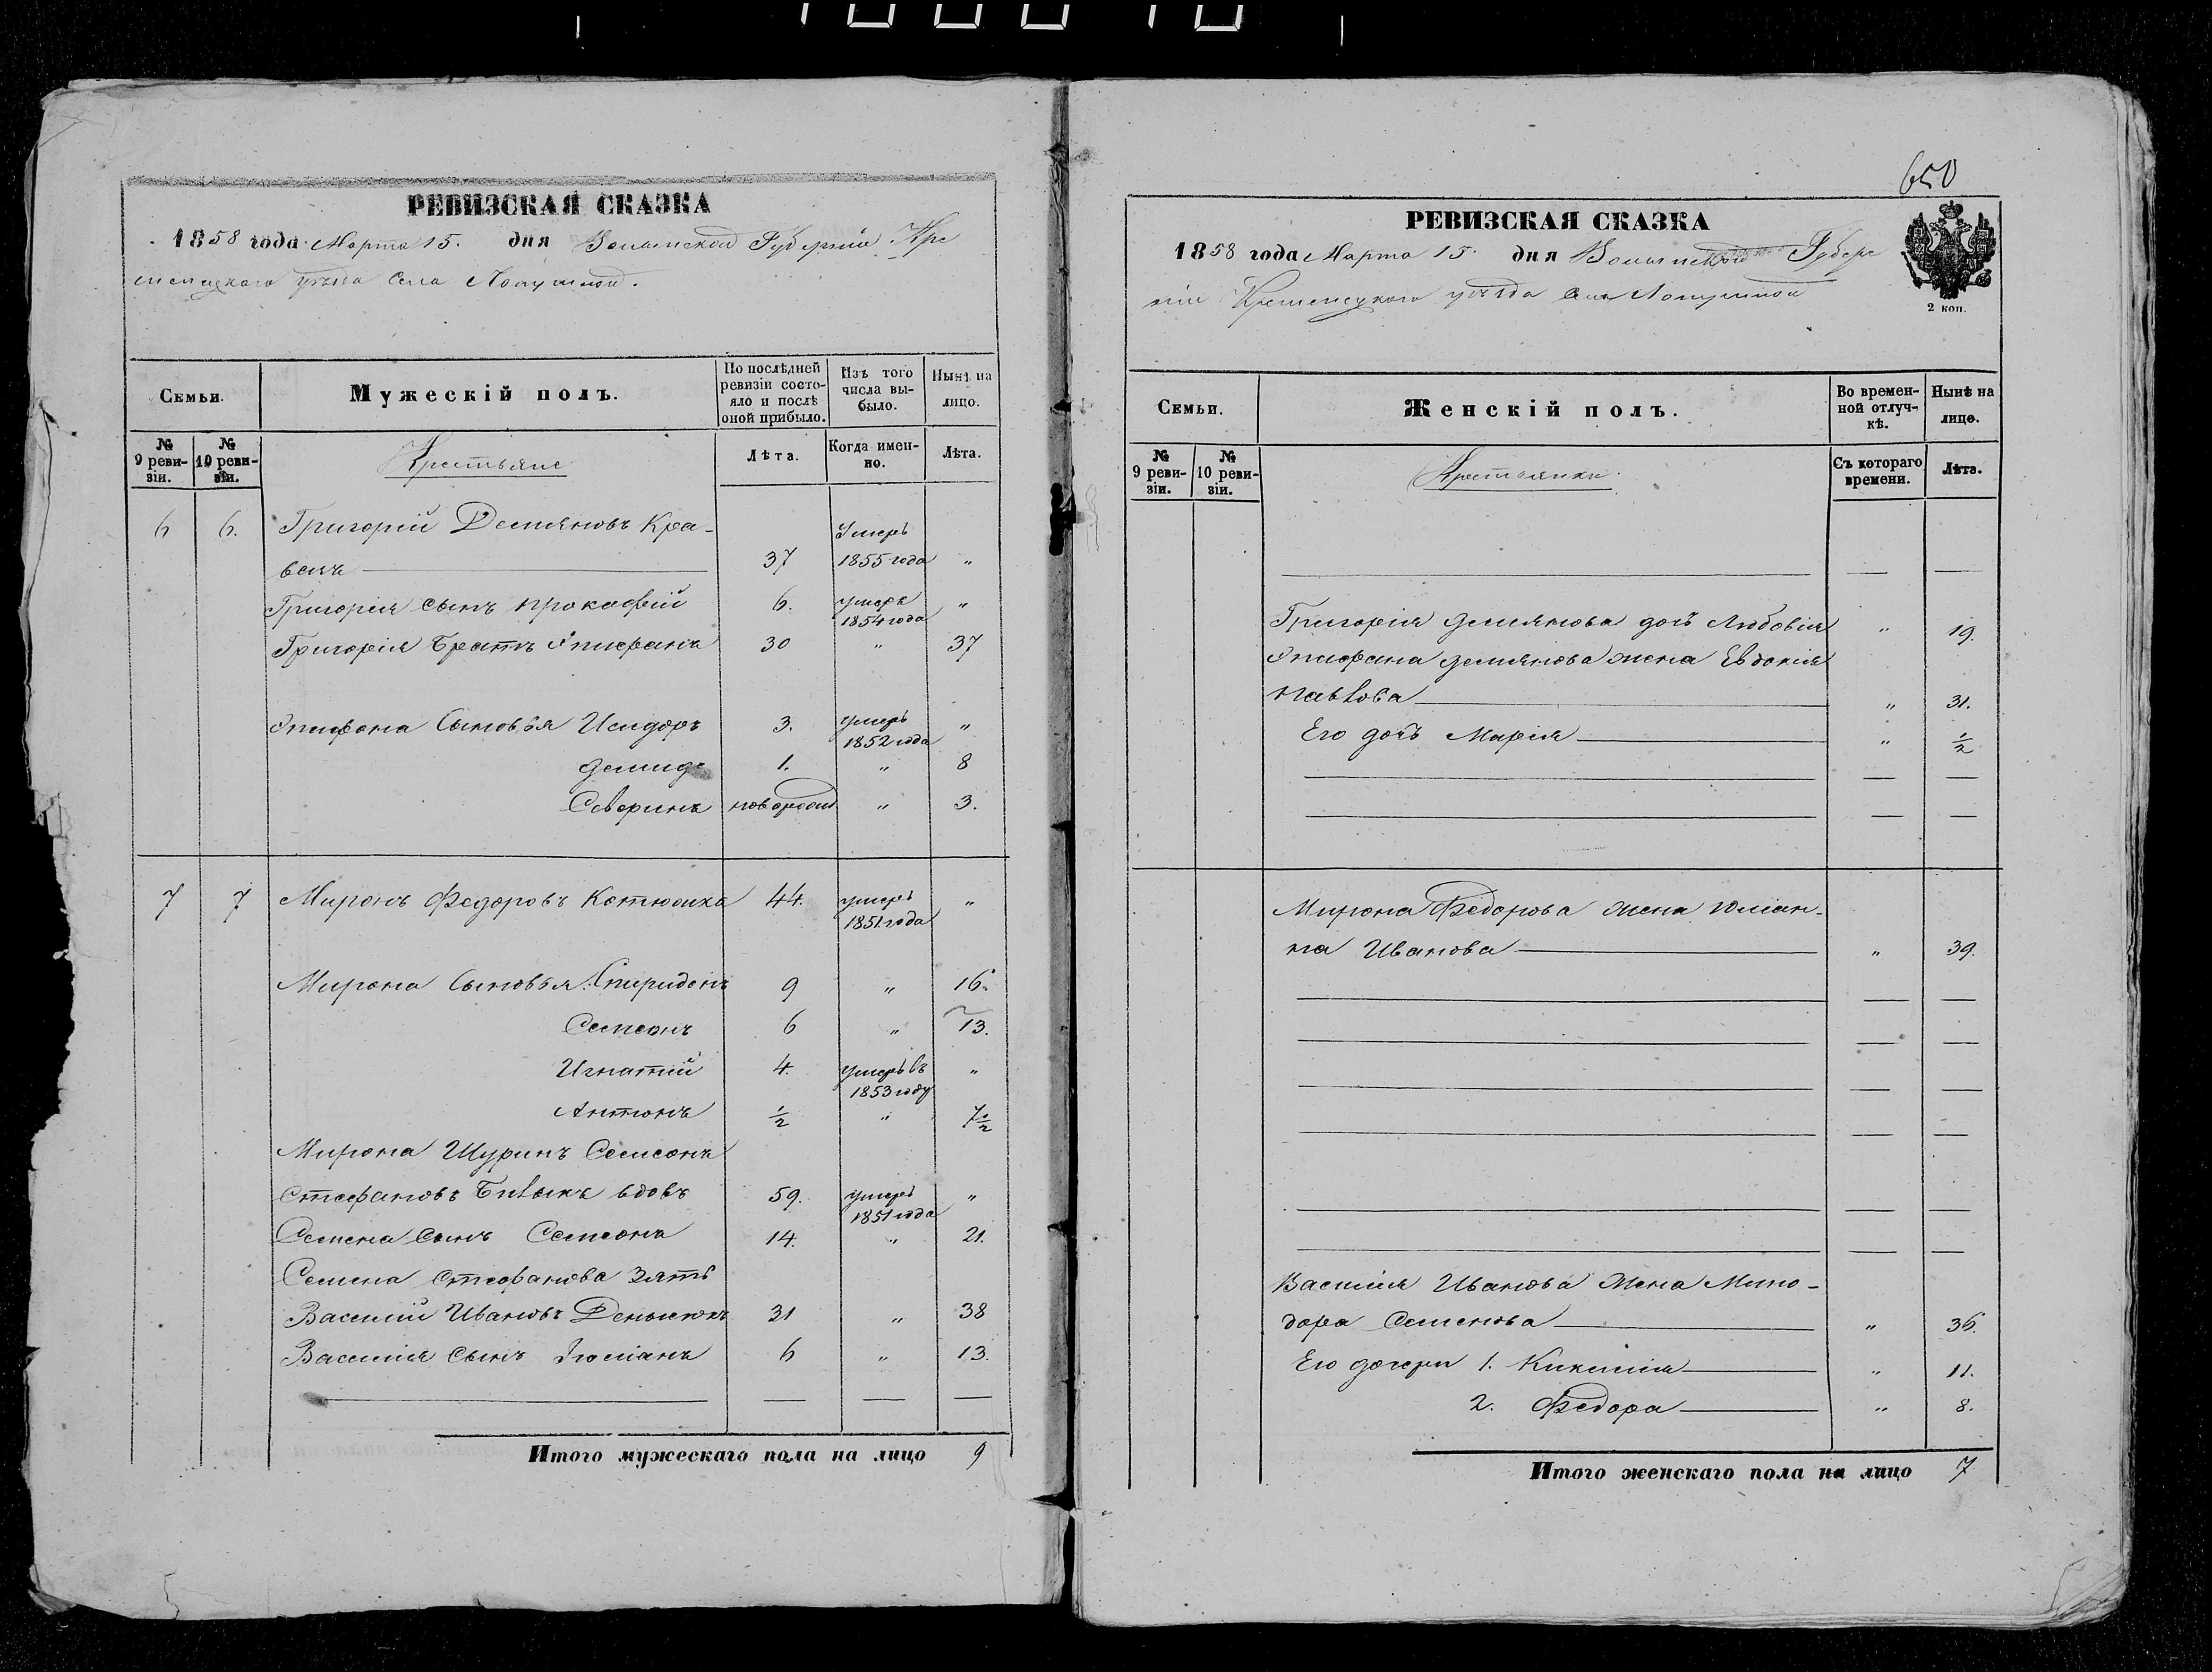 РЕВИЗСКАЯ СКАЗКА
1858 года Марта 15. дня Волынской Губерніи Кре
менецкого уѣзда Села Лопушной.
Семьи.
Мужескій полъ.
По послѣдней ревизіи состояло и послѣ оной прибыло.
Изъ того числа выбыло.
Нынѣ на лицо.
№ 9 ревизіи.
№ 10 ревизіи.
Крестьяне
Лѣта.
Когда именно.
Лѣта.
6 6. Григорій Демяновъ Кра- Умеръ
вецъ 37 1855 года "
Григорія сынъ Прокофій 6. умеръ 1854 года "
Григорія Братъ Епифанъ 30 " 37
Епифана Сыновья Исидоръ 3. умеръ 1852 года "
Демидъ 1. " 8
Северинъ новорожд " 3.
7 7 Миронъ Федоровъ 44. умеръ 1851 года "
Мирона Сыновья: Спиридонъ 9 " 16.
Семионъ 6 " 13.
Игнатій 4. умеръ въ 1853 году "
Антонъ ½ " 7½
Мирона Шуринъ Семионъ
Стефановъ вдовъ 59. умеръ 1851 года "
Семена Сынъ Семионъ 14. " 21.
Семена Стефанова Зять
Василій Ивановъ Денысюкъ 31 " 38
Василія Сынъ Іюліанъ 6 " 13.
Итого мужескаго пола на лицо 9
650
РЕВИЗСКАЯ СКАЗКА
1858 года Марта 15. дня Волынской Губер
ніи Кременецкого уѣзда Села Лопушной
2 коп.
Семьи.
Женскій полъ.
Во временной отлучкѣ.
Нынѣ на лицо.
№ 9 ревизіи.
№ 10 ревизіи.
Крестьянки.
Съ котораго времени.
Лѣта.
Григорія Демянова дочь Любовія " 19.
Епифана Демянова жена Евдокія
Павлова " 31.
Его дочь Марія " ½
Мирона Федорова жена Юліан-
на Иванова " 39.
Василія Иванова жена Мино-
дора Семенова " 36.
Его дочери 1. Кикилія " 11.
2. Федора " 8.
Итого женскаго пола на лицо 7